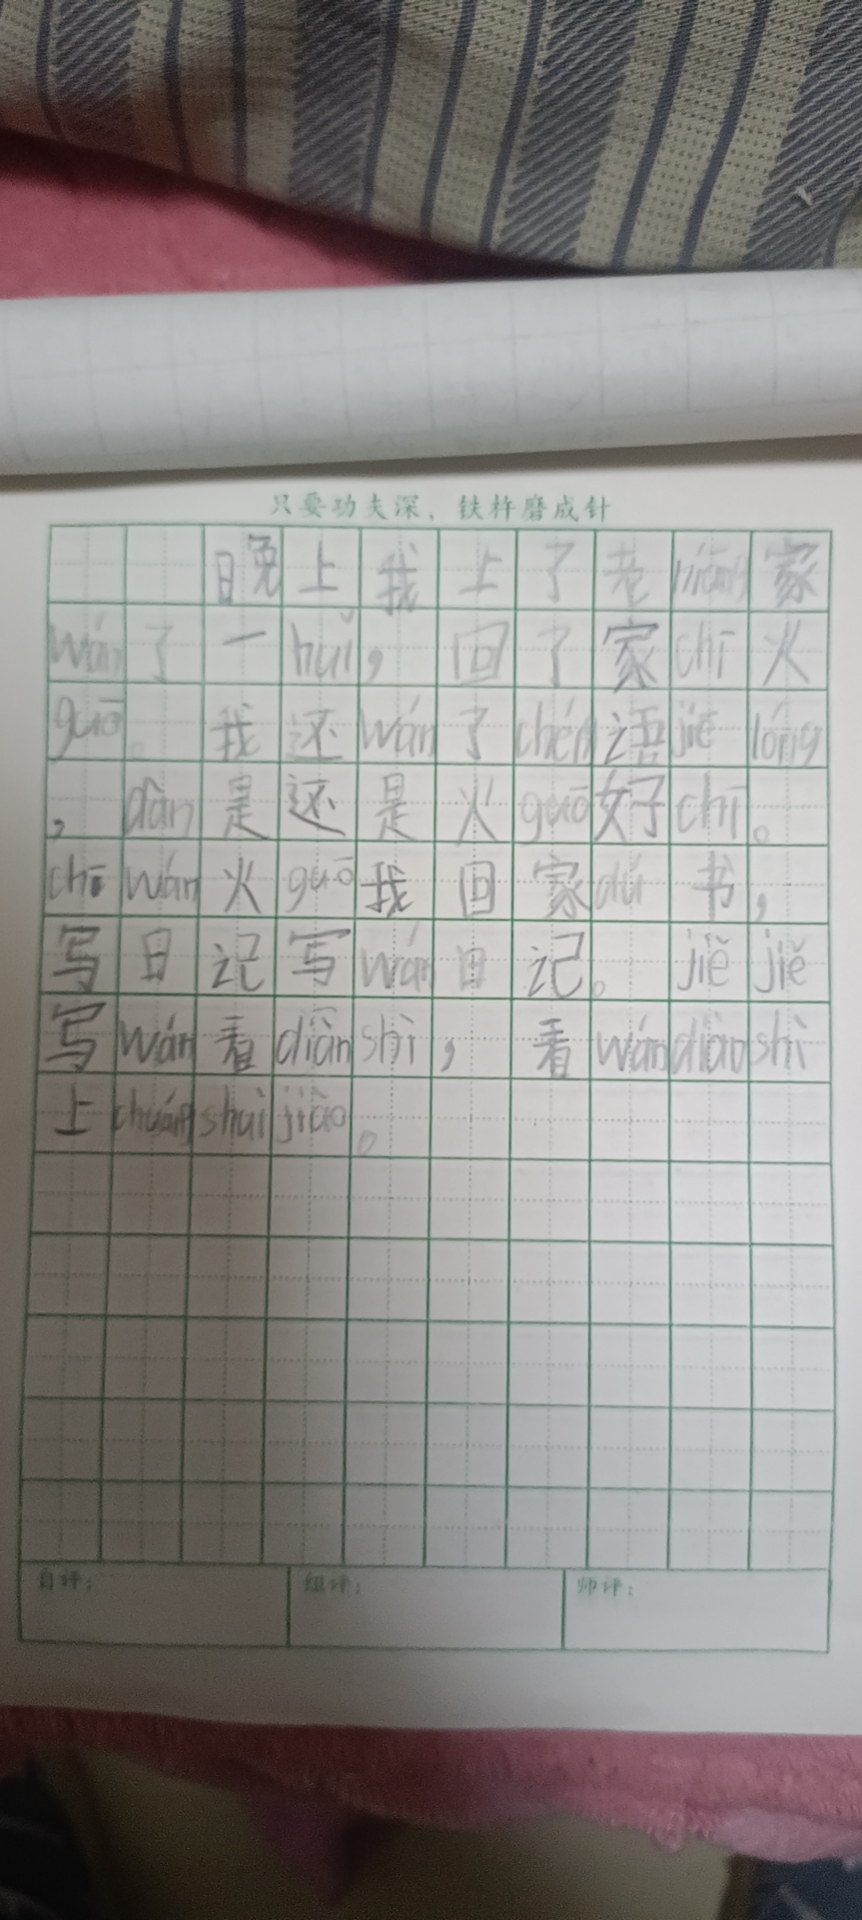 只要功夫深，铁杵磨成针
晚上我上了老niáng家
wán了一huǐ，回了家chī火
guō。我还wán了chén语jiē lóng
，dàn是还是火guō好chī。
chī wán火guō我回家dú书，
写日记写wán日记。jiě jiě
写wán看diàn shì，看wán diàn shì
上chuáng shuì jiào。
自评：
组评：
师评：